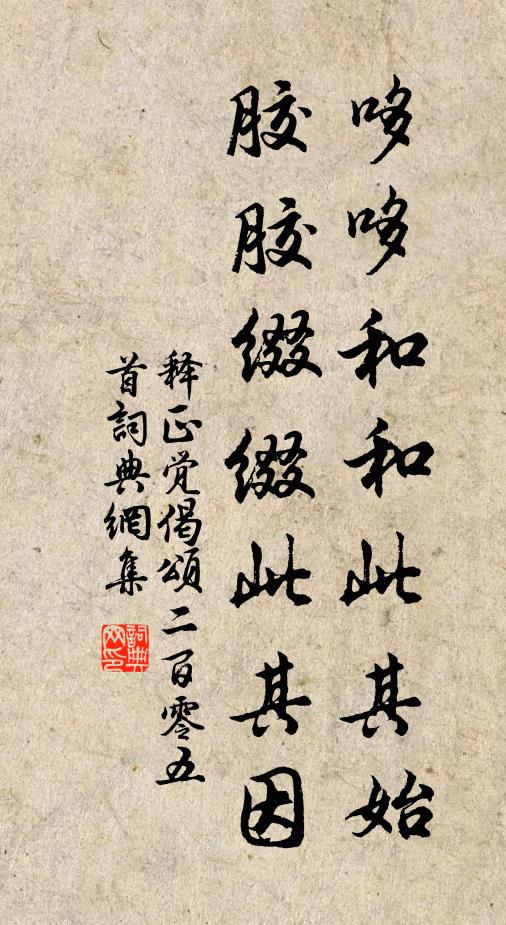 哆哆和和此其始
胶胶缀缀此其因
释正觉偈頌二百零五
首詞典網集
詞典
网印